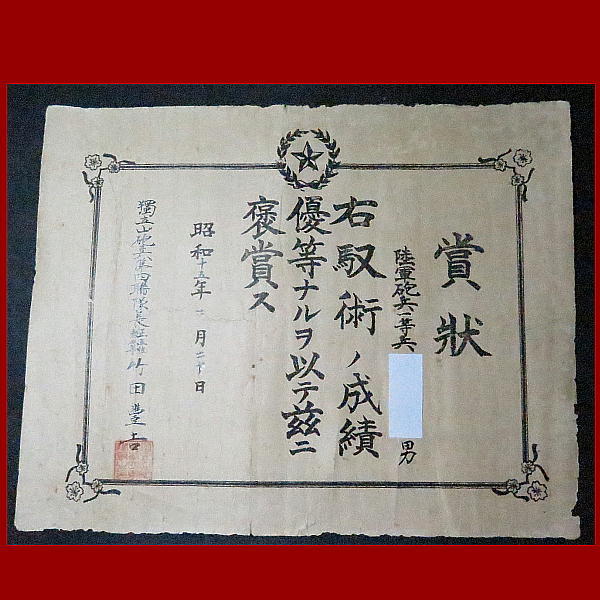 賞狀
陸軍砲兵 等兵 男
右馭術ノ成績
優等ナルヲ以テ茲ニ
褒賞ス
昭和十五年 月 日
獨立山砲兵第四聯隊長 竹田豊吉